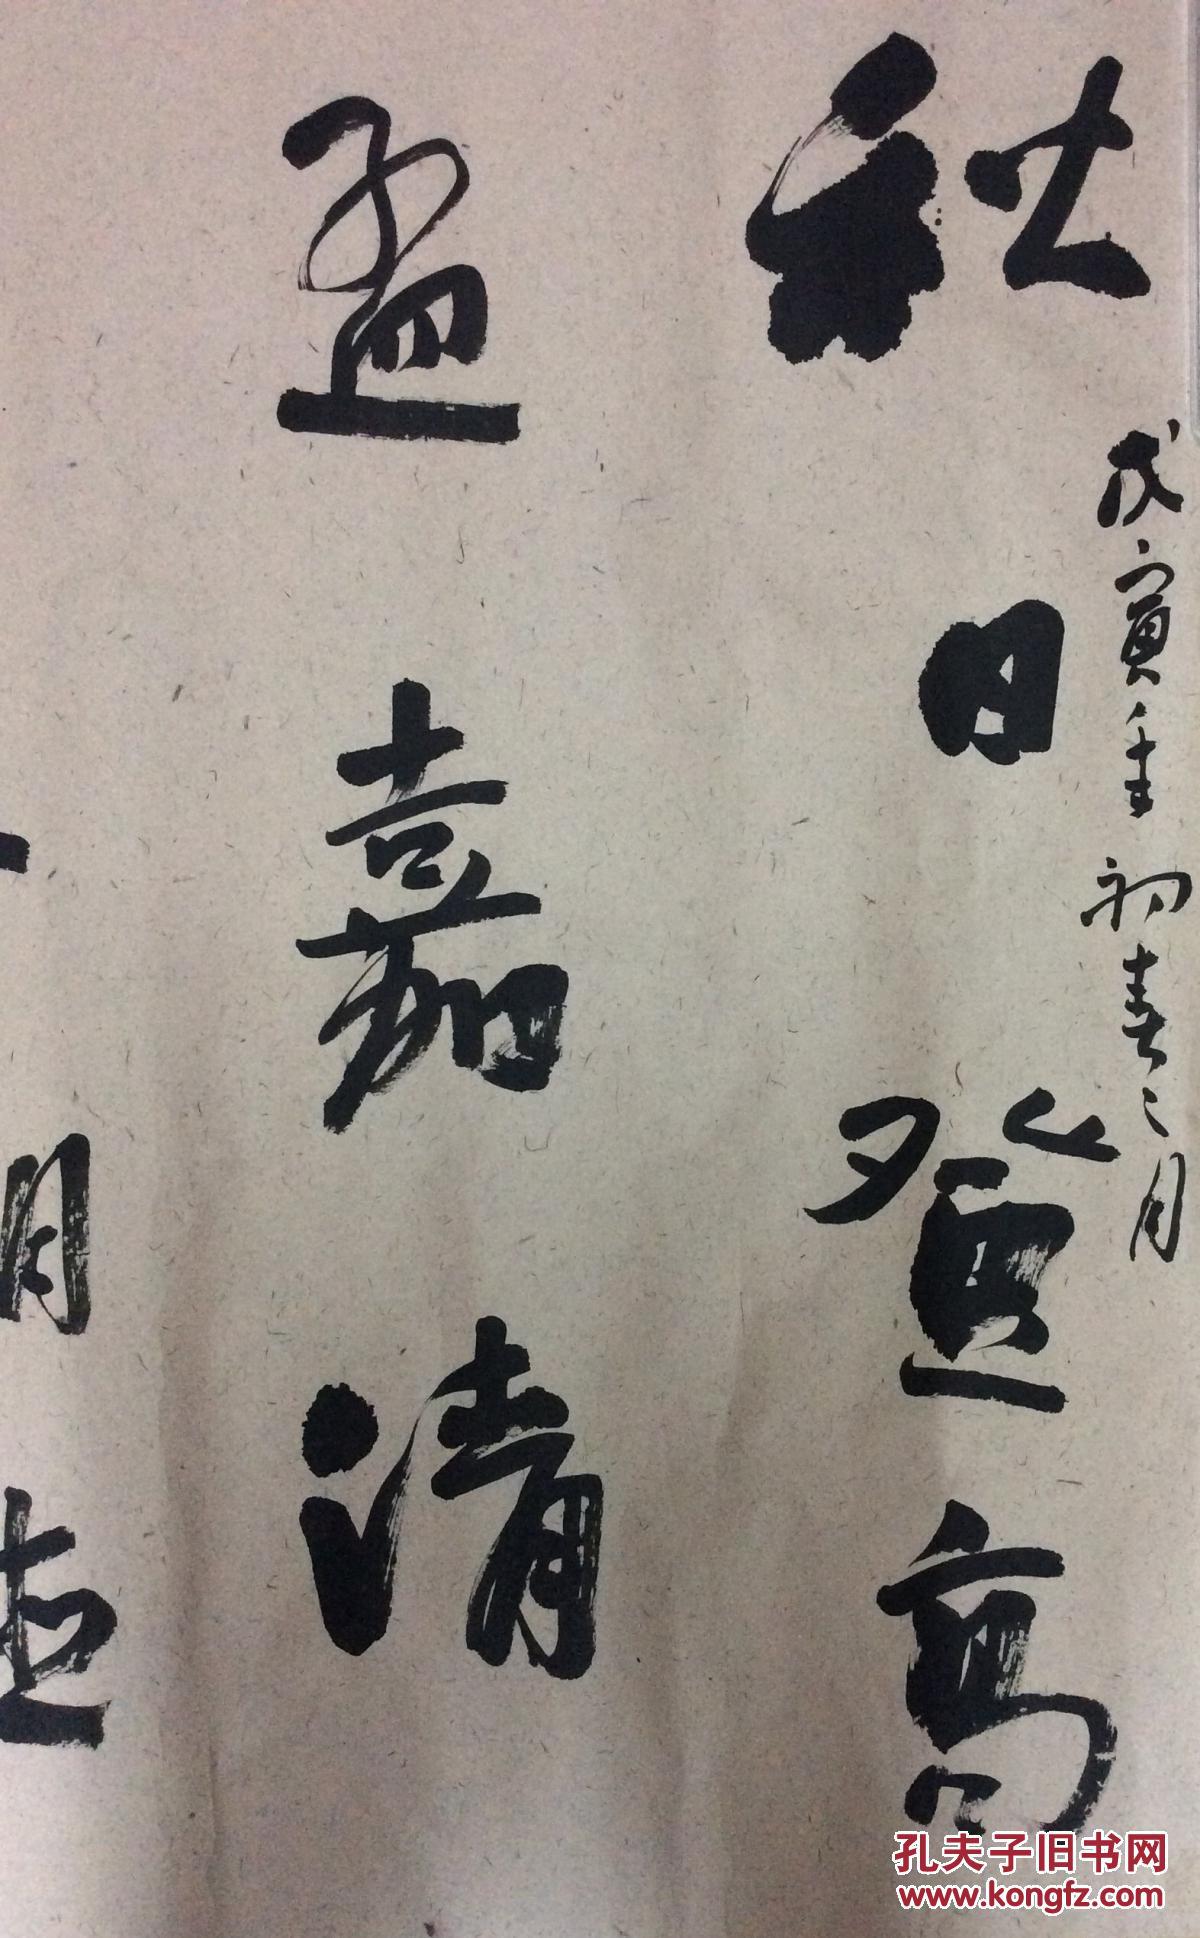 秋日登高
戊寅年初春二月
孟嘉清
孔夫子旧书网
www.kongfz.com